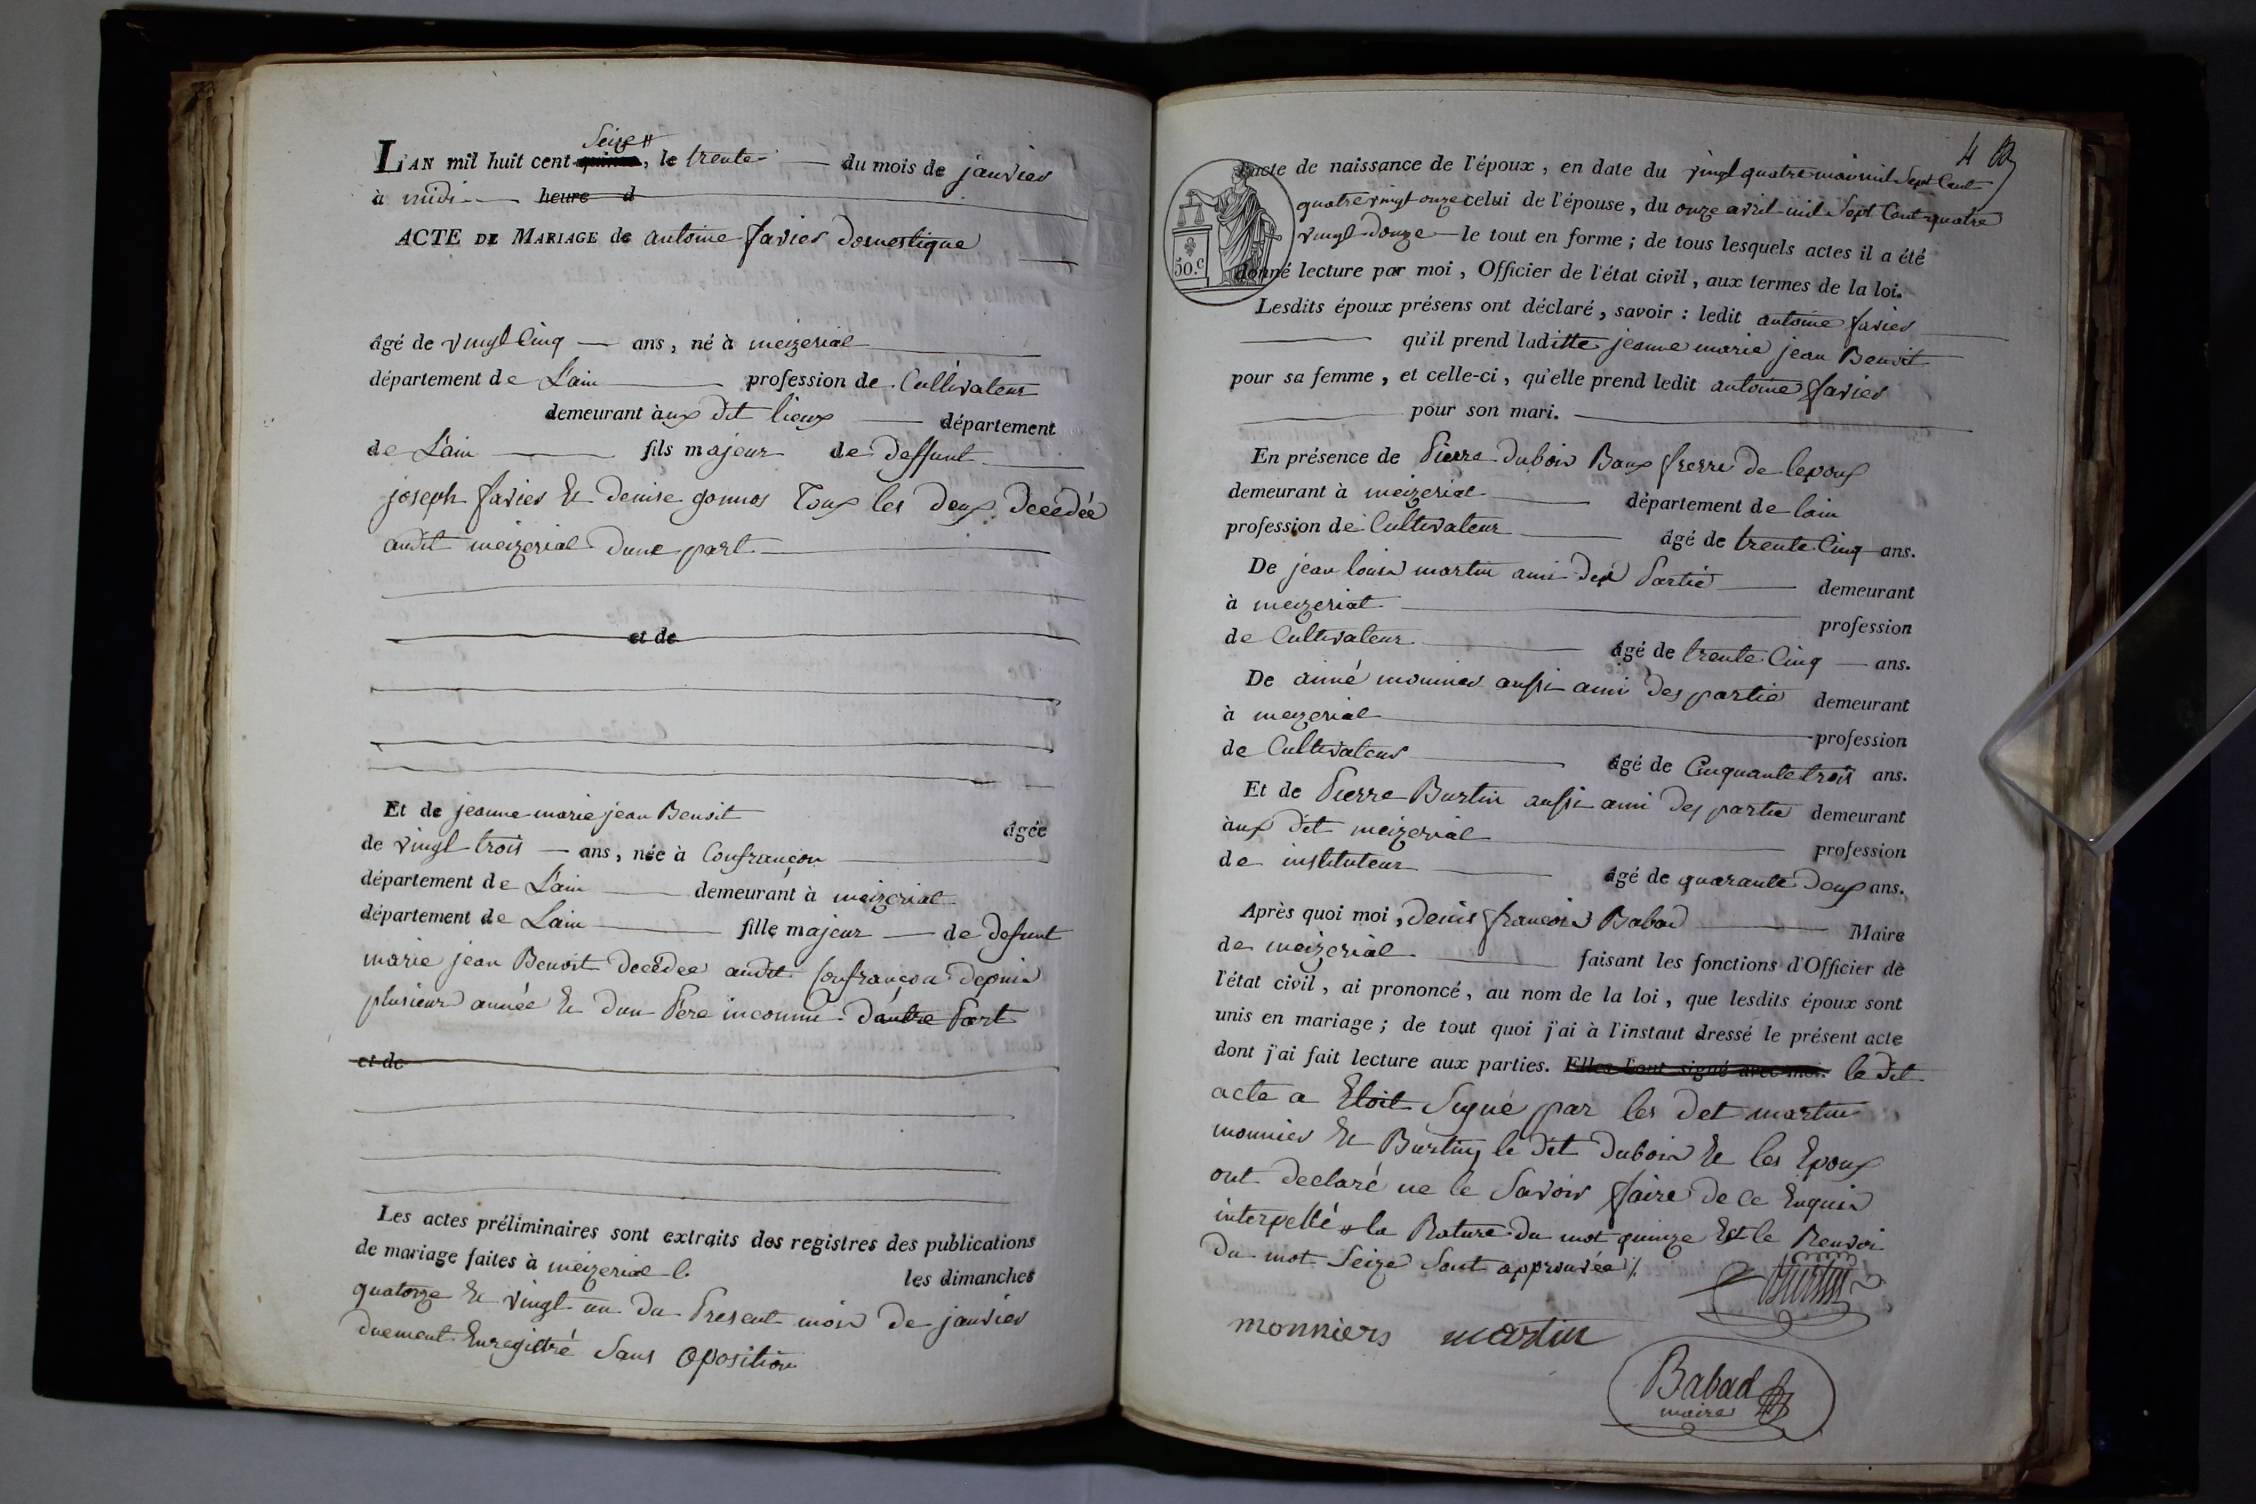 Seize #
L'AN mil huit cent quinze, le trente du mois de janvier
à midi heure d
ACTE DE MARIAGE de antoine favier domestique
âgé de vingt Cinq ans, né à meizeriat
département de L'ain profession de Cultivateur
demeurant àux dit lieux département
de L'ain fils majeur de deffunt
joseph favier Et denise gonnos Tous les deux décédée
audit meizeriat dune part
et de
Et de jeanne marie jean Benoit âgée
de vingt trois ans, née à Confrançon
département de L'ain demeurant à meizeriat
département de Lain fille majeur de defunt
marie jean Benoit décédée audit Confrançon depuis
plusieur année Et dun Père inconnu d'autre Part
et de
Les actes préliminaires sont extraits des registres des publications
de mariage faites à meizeriat les dimanches
quatorze Et vingt un du Present mois de janvier
duement Enregistré Sans Oposition
4
L'acte de naissance de l'époux, en date du vingt quatre mai mil Sept Cent
quatre vingt onze celui de l'épouse, du onze avril mil Sept Cent quatre
vingt douze le tout en forme; de tous lesquels actes il a été
50.c donné lecture par moi, Officier de l'état civil, aux termes de la loi.
Lesdits époux présens ont déclaré, savoir: ledit antoine favier
qu'il prend laditte jeanne marie jean Benoit
pour sa femme, et celle-ci, qu'elle prend ledit antoine favier
pour son mari.
En présence de Pierre dubois Baux frerre de lepoux
demeurant à meizeriat département de lain
profession de Cultivateur âgé de trente Cinq ans.
De jean louis martin ami des Partie demeurant
à meizeriat profession
de Cultivateur âgé de trente Cinq ans.
De aimé monnier aussi ami des partie demeurant
à meizeriat profession
de Cultivateur âgé de Cinquante trois ans.
Et de Pierre Burtin aussi ami des partie demeurant
àux dit meizeriat profession
de instituteur âgé de quarante deux ans.
Après quoi moi, denis françois Babad Maire
de meizeriat faisant les fonctions d'Officier de
l'état civil, ai prononcé, au nom de la loi, que lesdits époux sont
unis en mariage; de tout quoi j'ai à l'instaut dressé le présent acte
dont j'ai fait lecture aux parties. Elles l'ont signé avec moi. le dit
acte a Etoit Signé par les det martin
monnier Et Burtin, le dit dubois Et les Epoux
ont declaré ne le Savoir faire de ce Enquis
interpellé # la Rature du mot quinze Et le Renvoi
du mot Seize Sont approuvée
Burtin
monniers martin
Babad
maire